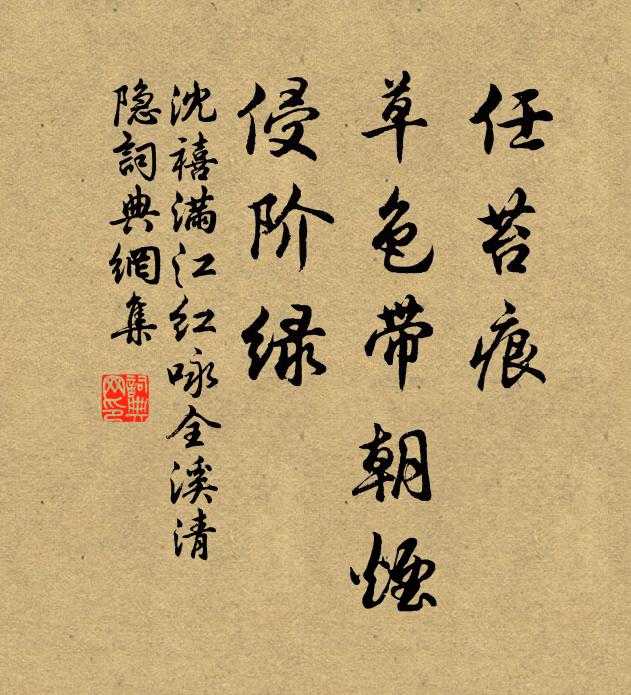 任苔痕
草色带朝煙
侵阶绿
沈禧满江红咏全溪清
隐詞典網集
詞典
网印